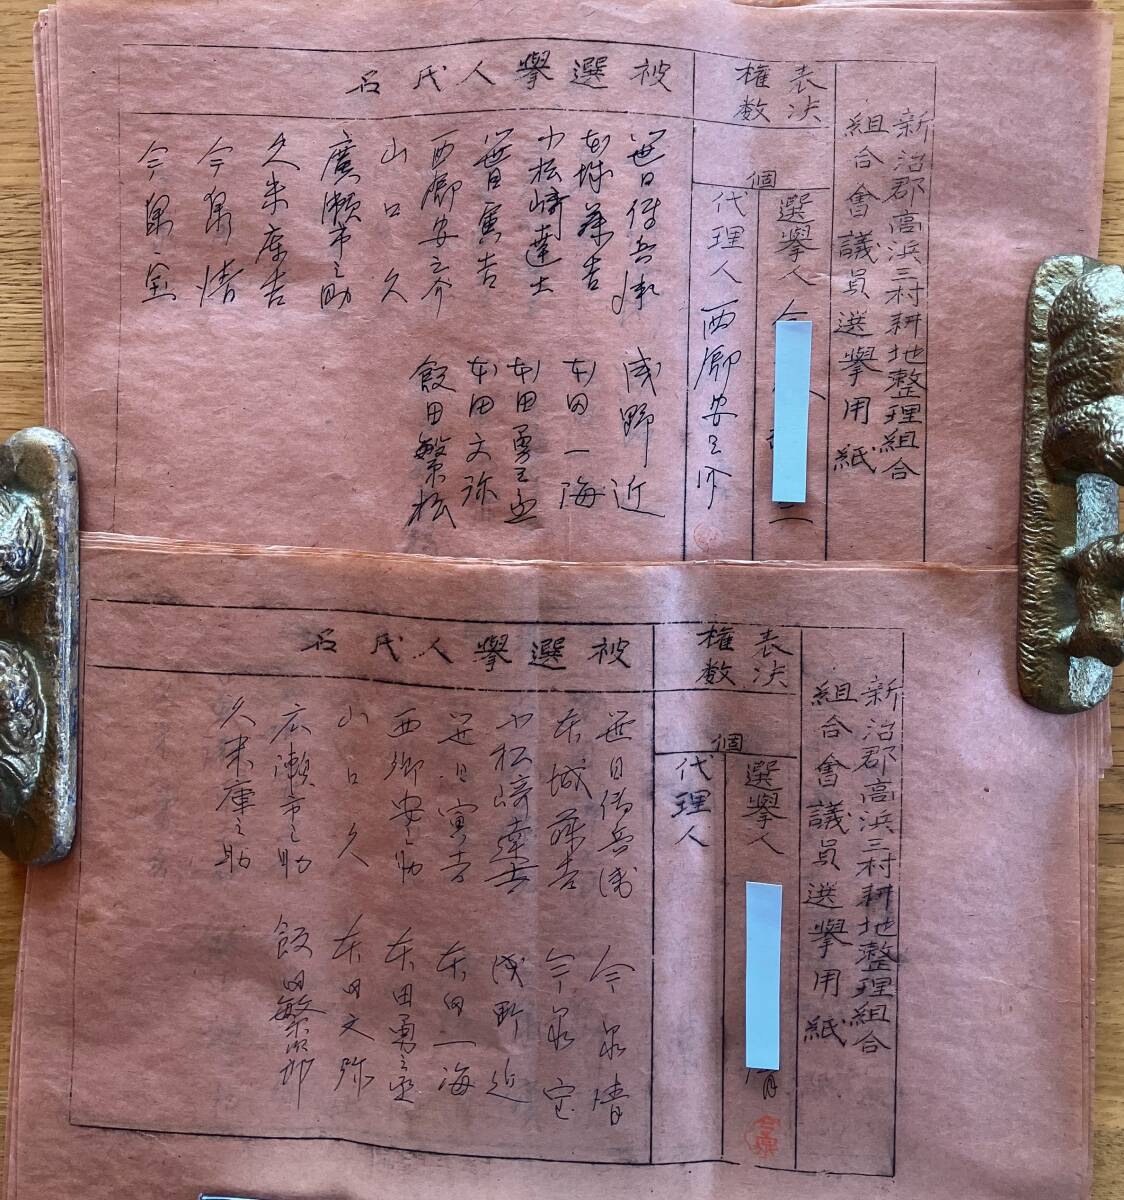 新治郡高浜三村耕地整理組合
組合會議員選擧用紙
表決
権数
個
選擧人
代理人 西郷安之介
被選擧人氏名
本城藤吉
小松﨑達士
西郷安之介
山口久
廣瀬市之助
久米庫吉
今泉清
今泉宝
浅野近
本田一海
本田勇之丞
本田文弥
飯田繁松
新治郡高浜三村耕地整理組合
組合會議員選擧用紙
表決
権数
個
選擧人
代理人
被選擧人氏名
本城藤吉
小松﨑達吉
西郷安之助
山口久
広瀬市之助
久米庫之助
今泉清
今泉宝
浅野近
本田一海
本田勇之丞
本田文弥